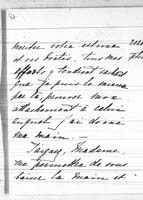 mériter votre estime
et vos bontés, tous mes
efforts y tendront
que je puis la mieux
par là, prouver mon
attachement à celui
auquel j'ai donné
ma main. —
Daignez, Madame,
me permettre de vous
baiser la main et